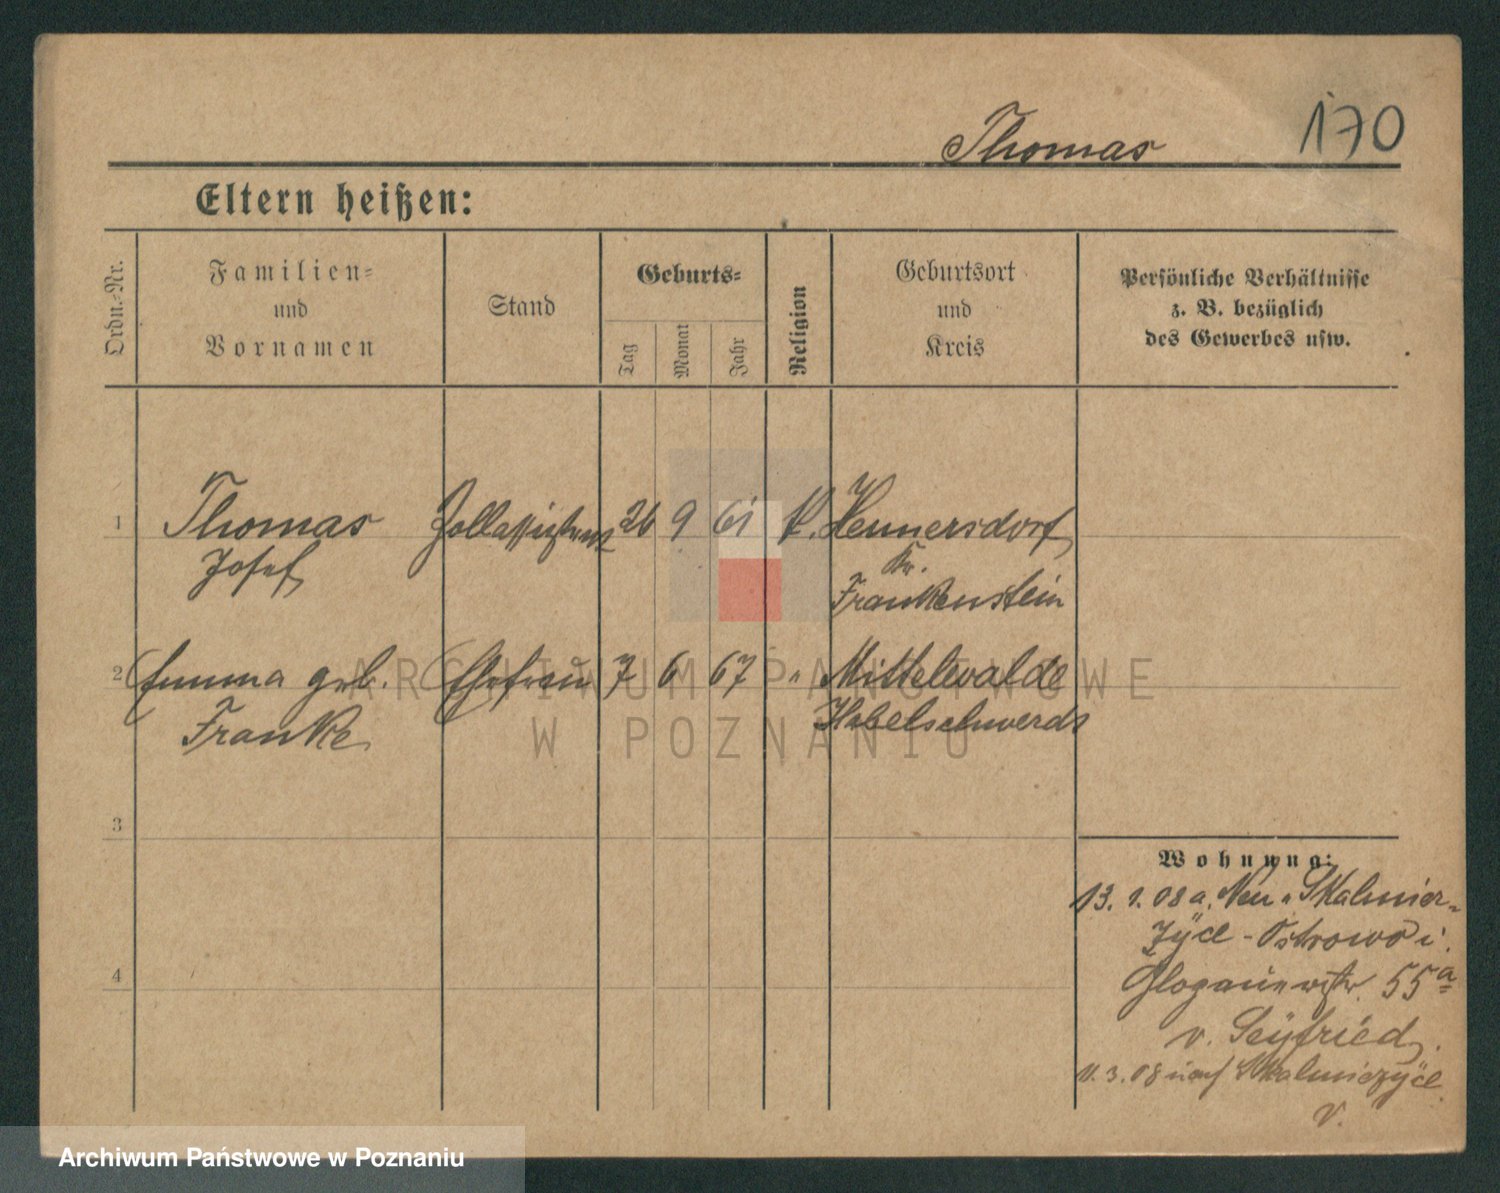 Thomas 170
Eltern heißen:
Ordn.-Nr.
Familien-
und
Vornamen
Stand
Geburts-
Tag
Monat
Jahr
Religion
Geburtsort
und
Kreis
Persönliche Verhältnisse
z. B. bezüglich
des Gewerbes usw.
1 Thomas Zollassistent 26 9 61 k. Hennersdorf
Josef Kr.
Frankenstein
2 Emma geb. Ehefrau 7 6 67 " Mittelwalde
Franke Habelschwerdt
3
4
Wohnung:
13. 1. 08 a. Neu-Skalmier-
zÿce - Ostrowo i.
Glogauerstr. 55a
v. Seÿfried.
11. 3. 08 nach Skalmierzÿce
v.
ARCHIWUM PAŃSTWOWE
W POZNANIU
Archiwum Państwowe w Poznaniu